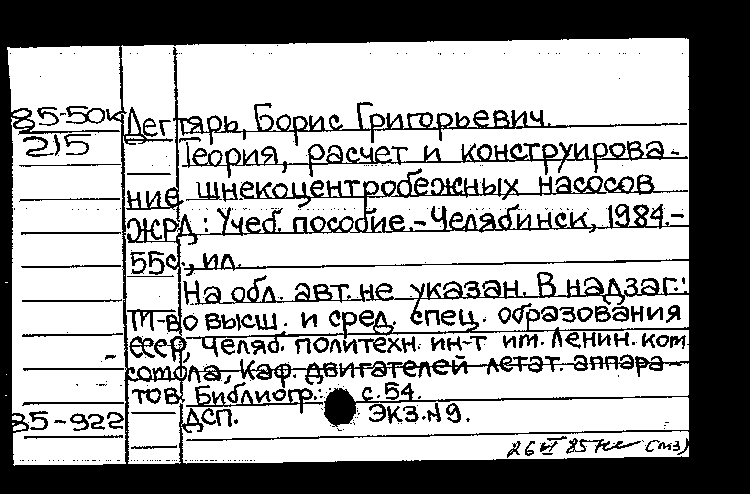 85-50к Дегтярь, Борис Григорьевич.
215 Теория, расчет и конструирова-
ние шнекоцентробежных насосов
ЖРД: Учеб. пособие.-Челябинск, 1984.-
55с., ил.
На обл. авт. не указан. В надзаг.:
М-во высш. и сред. спец. образования
СССР, Челяб. политехн. ин-т им. Ленин. ком
сомола, Каф. двигателей летат. аппара-
тов. Библиогр.: с.54.
85-922 ДСП. Экз.№9.
26 VI 85 (мз)